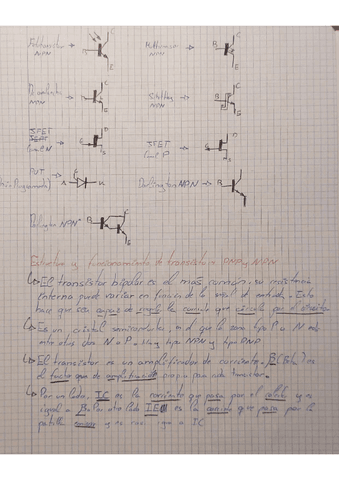 Fototransistor NPN
Multiemisor NPN
NPN
Schottky NPN
JFET
Canal N
JFET
Canal P
PUT
Darlington NPN
Darlington NPN
Estructura y funcionamiento de transistores PNP y NPN
↳ El transistor bipolar es el más común, su resistencia
interna puede variar en función de la señal de entrada. Esto
hace que sea capaz de regular la corriente que circula por el circuito
↳ Es un cristal semiconductor, en el que la zona tipo P o N está
entre otras dos N o P. Hay tipo NPN y tipo PNP
↳ El transistor es un amplificador de corriente. B(Beta) es
el factor de amplificación propia para cada transistor.
↳ Por un lado, IC es la corriente que pasa por el colector y es
igual a Por otro lado IE es la corriente que pasa por la
patilla emisor y es casi igual a IC